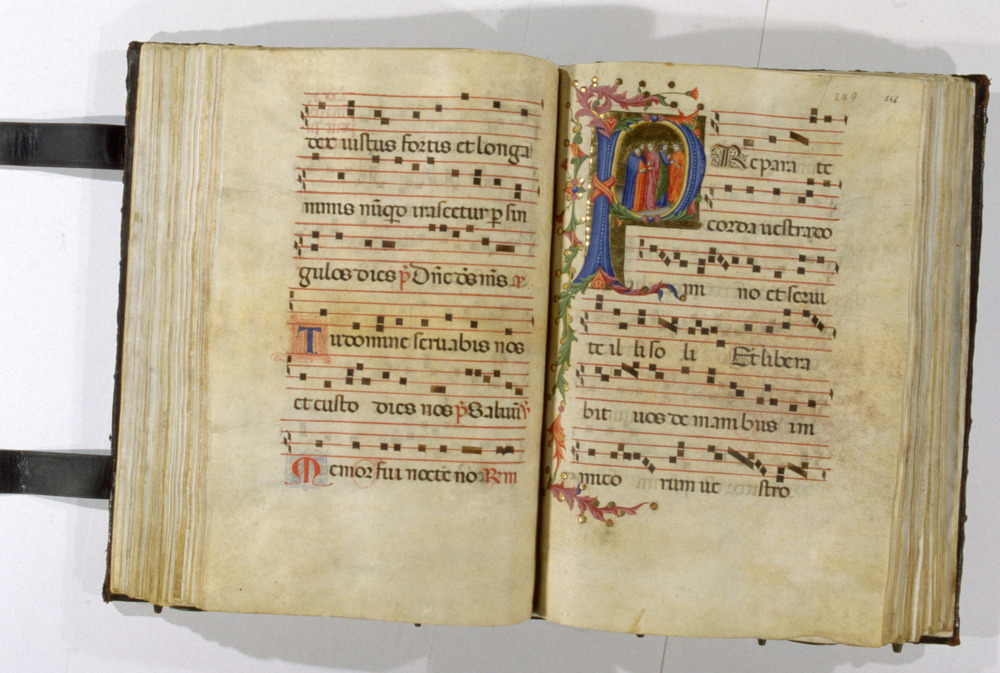 dex iustus fortis et longa
nimis nūqd irascetur p sin
gulos dies p̄ Dn̄e ds̄ m̄s
Tu domine seruabis nos
et custo dies nos p̄ Saluū
Memor fui nocte no Rm̄
149
PRepara te
corda uestra do
mi no et serui
te il li so li Et libera
bit uos de manibus in
imico rum ue stro